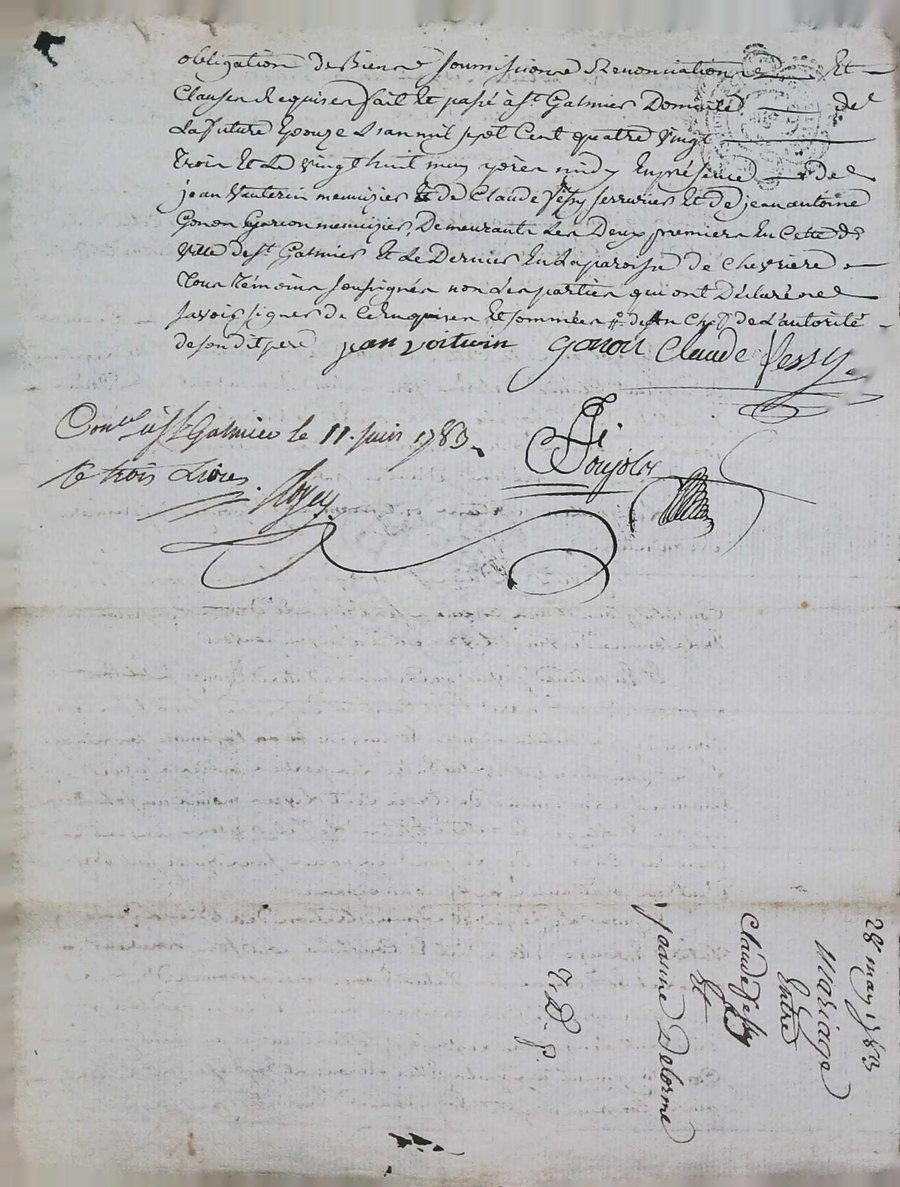 obligation de Biens soumissions Renonciations Et
Clauses Requises fait Et passé à St Galmier Domicile de
La future Epouze L'an mil sept Cent quatre vingt
trois Et Le vingt huit may après midy En présence de
jean Vauterin menuisier Et de Claude Fessy serrurier Et de jean antoine
Gonon Garcon menuisier, Demeurants Les Deux premiers En Cette de
ville de St Galmier Et Le Dernier En La paroisse de Chevriere
Tous témoins soussignés non Les parties qui ont Déclaré ne
savoir signer de Ce Enquises Et sommées de L'autorité
de son dit pere jean voituin gonon Claude fessy
Conlé à St Galmier le 11. juin 1783
trois Livres.
28e may 1783
Mariage
Entre
Claude Fessy
Et
Jeanne Delorme